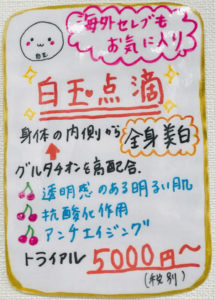 海外セレブも
お気に入り
白玉
白玉♥点滴
身体の内側から
全身美白
グルタチオンを高配合.
透明感のある明るい肌
抗酸化作用
アンチエイジング
トライアル 5000円〜
(税別)